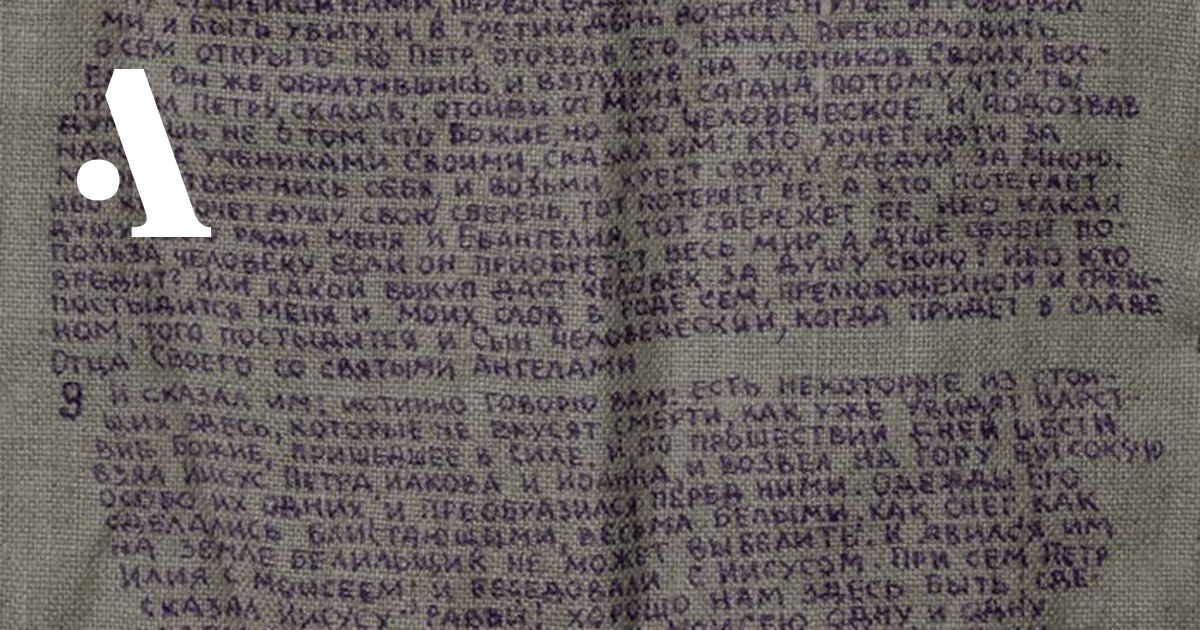 МИ, И БЫТЬ УБИТУ, И В ТРЕТИЙ ДЕНЬ ВОСКРЕСНУТЬ. И ГОВОРИЛ
О СЕМ ОТКРЫТО. НО ПЕТР, ОТОЗВАВ ЕГО, НАЧАЛ ПРЕКОСЛОВИТЬ
ОН ЖЕ, ОБРАТИВШИСЬ И ВЗГЛЯНУВ НА УЧЕНИКОВ СВОИХ, ВОС-
ПЕТРУ, СКАЗАВ: ОТОЙДИ ОТ МЕНЯ, САТАНА, ПОТОМУ ЧТО ТЫ
НЕ О ТОМ, ЧТО БОЖИЕ, НО ЧТО ЧЕЛОВЕЧЕСКОЕ. И ПОДОЗВАВ
УЧЕНИКАМИ СВОИМИ, СКАЗАЛ ИМ: КТО ХОЧЕТ ИДТИ ЗА
СЕБЯ, И ВОЗЬМИ КРЕСТ СВОЙ, И СЛЕДУЙ ЗА МНОЮ.
ДУШУ СВОЮ СБЕРЕЧЬ, ТОТ ПОТЕРЯЕТ ЕЕ, А КТО ПОТЕРЯЕТ
ДУШУ РАДИ МЕНЯ И ЕВАНГЕЛИЯ, ТОТ СБЕРЕЖЕТ ЕЕ. ИБО КАКАЯ
ПОЛЬЗА ЧЕЛОВЕКУ, ЕСЛИ ОН ПРИОБРЕТЕТ ВЕСЬ МИР, А ДУШЕ СВОЕЙ ПО-
ВРЕДИТ? ИЛИ КАКОЙ ВЫКУП ДАСТ ЧЕЛОВЕК ЗА ДУШУ СВОЮ? ИБО КТО
ПОСТЫДИТСЯ МЕНЯ И МОИХ СЛОВ В РОДЕ СЕМ, ПРЕЛЮБОДЕЙНОМ И ГРЕШ-
НОМ, ТОГО ПОСТЫДИТСЯ И СЫН ЧЕЛОВЕЧЕСКИЙ, КОГДА ПРИДЕТ В СЛАВЕ
ОТЦА СВОЕГО СО СВЯТЫМИ АНГЕЛАМИ
9 И СКАЗАЛ ИМ: ИСТИННО ГОВОРЮ ВАМ: ЕСТЬ НЕКОТОРЫЕ ИЗ СТОЯ-
ЩИХ ЗДЕСЬ, КОТОРЫЕ НЕ ВКУСЯТ СМЕРТИ, КАК УЖЕ УВИДЯТ ЦАРСТ-
ВИЕ БОЖИЕ, ПРИШЕДШЕЕ В СИЛЕ. И ПО ПРОШЕСТВИИ ДНЕЙ ШЕСТИ
ВЗЯЛ ИИСУС ПЕТРА, ИАКОВА И ИОАННА, И ВОЗВЕЛ НА ГОРУ ВЫСОКУЮ
ОСОБО ИХ ОДНИХ, И ПРЕОБРАЗИЛСЯ ПЕРЕД НИМИ. ОДЕЖДЫ ЕГО
СДЕЛАЛИСЬ БЛИСТАЮЩИМИ, ВЕСЬМА БЕЛЫМИ, КАК СНЕГ, КАК
НА ЗЕМЛЕ БЕЛИЛЬЩИК НЕ МОЖЕТ ВЫБЕЛИТЬ. И ЯВИЛСЯ ИМ
ИЛИЯ С МОИСЕЕМ; И БЕСЕДОВАЛИ С ИИСУСОМ. ПРИ СЕМ ПЕТР
СКАЗАЛ ИИСУСУ: РАВВИ! ХОРОШО НАМ ЗДЕСЬ БЫТЬ; СДЕ-
МОИСЕЮ ОДНУ И ОДНУ